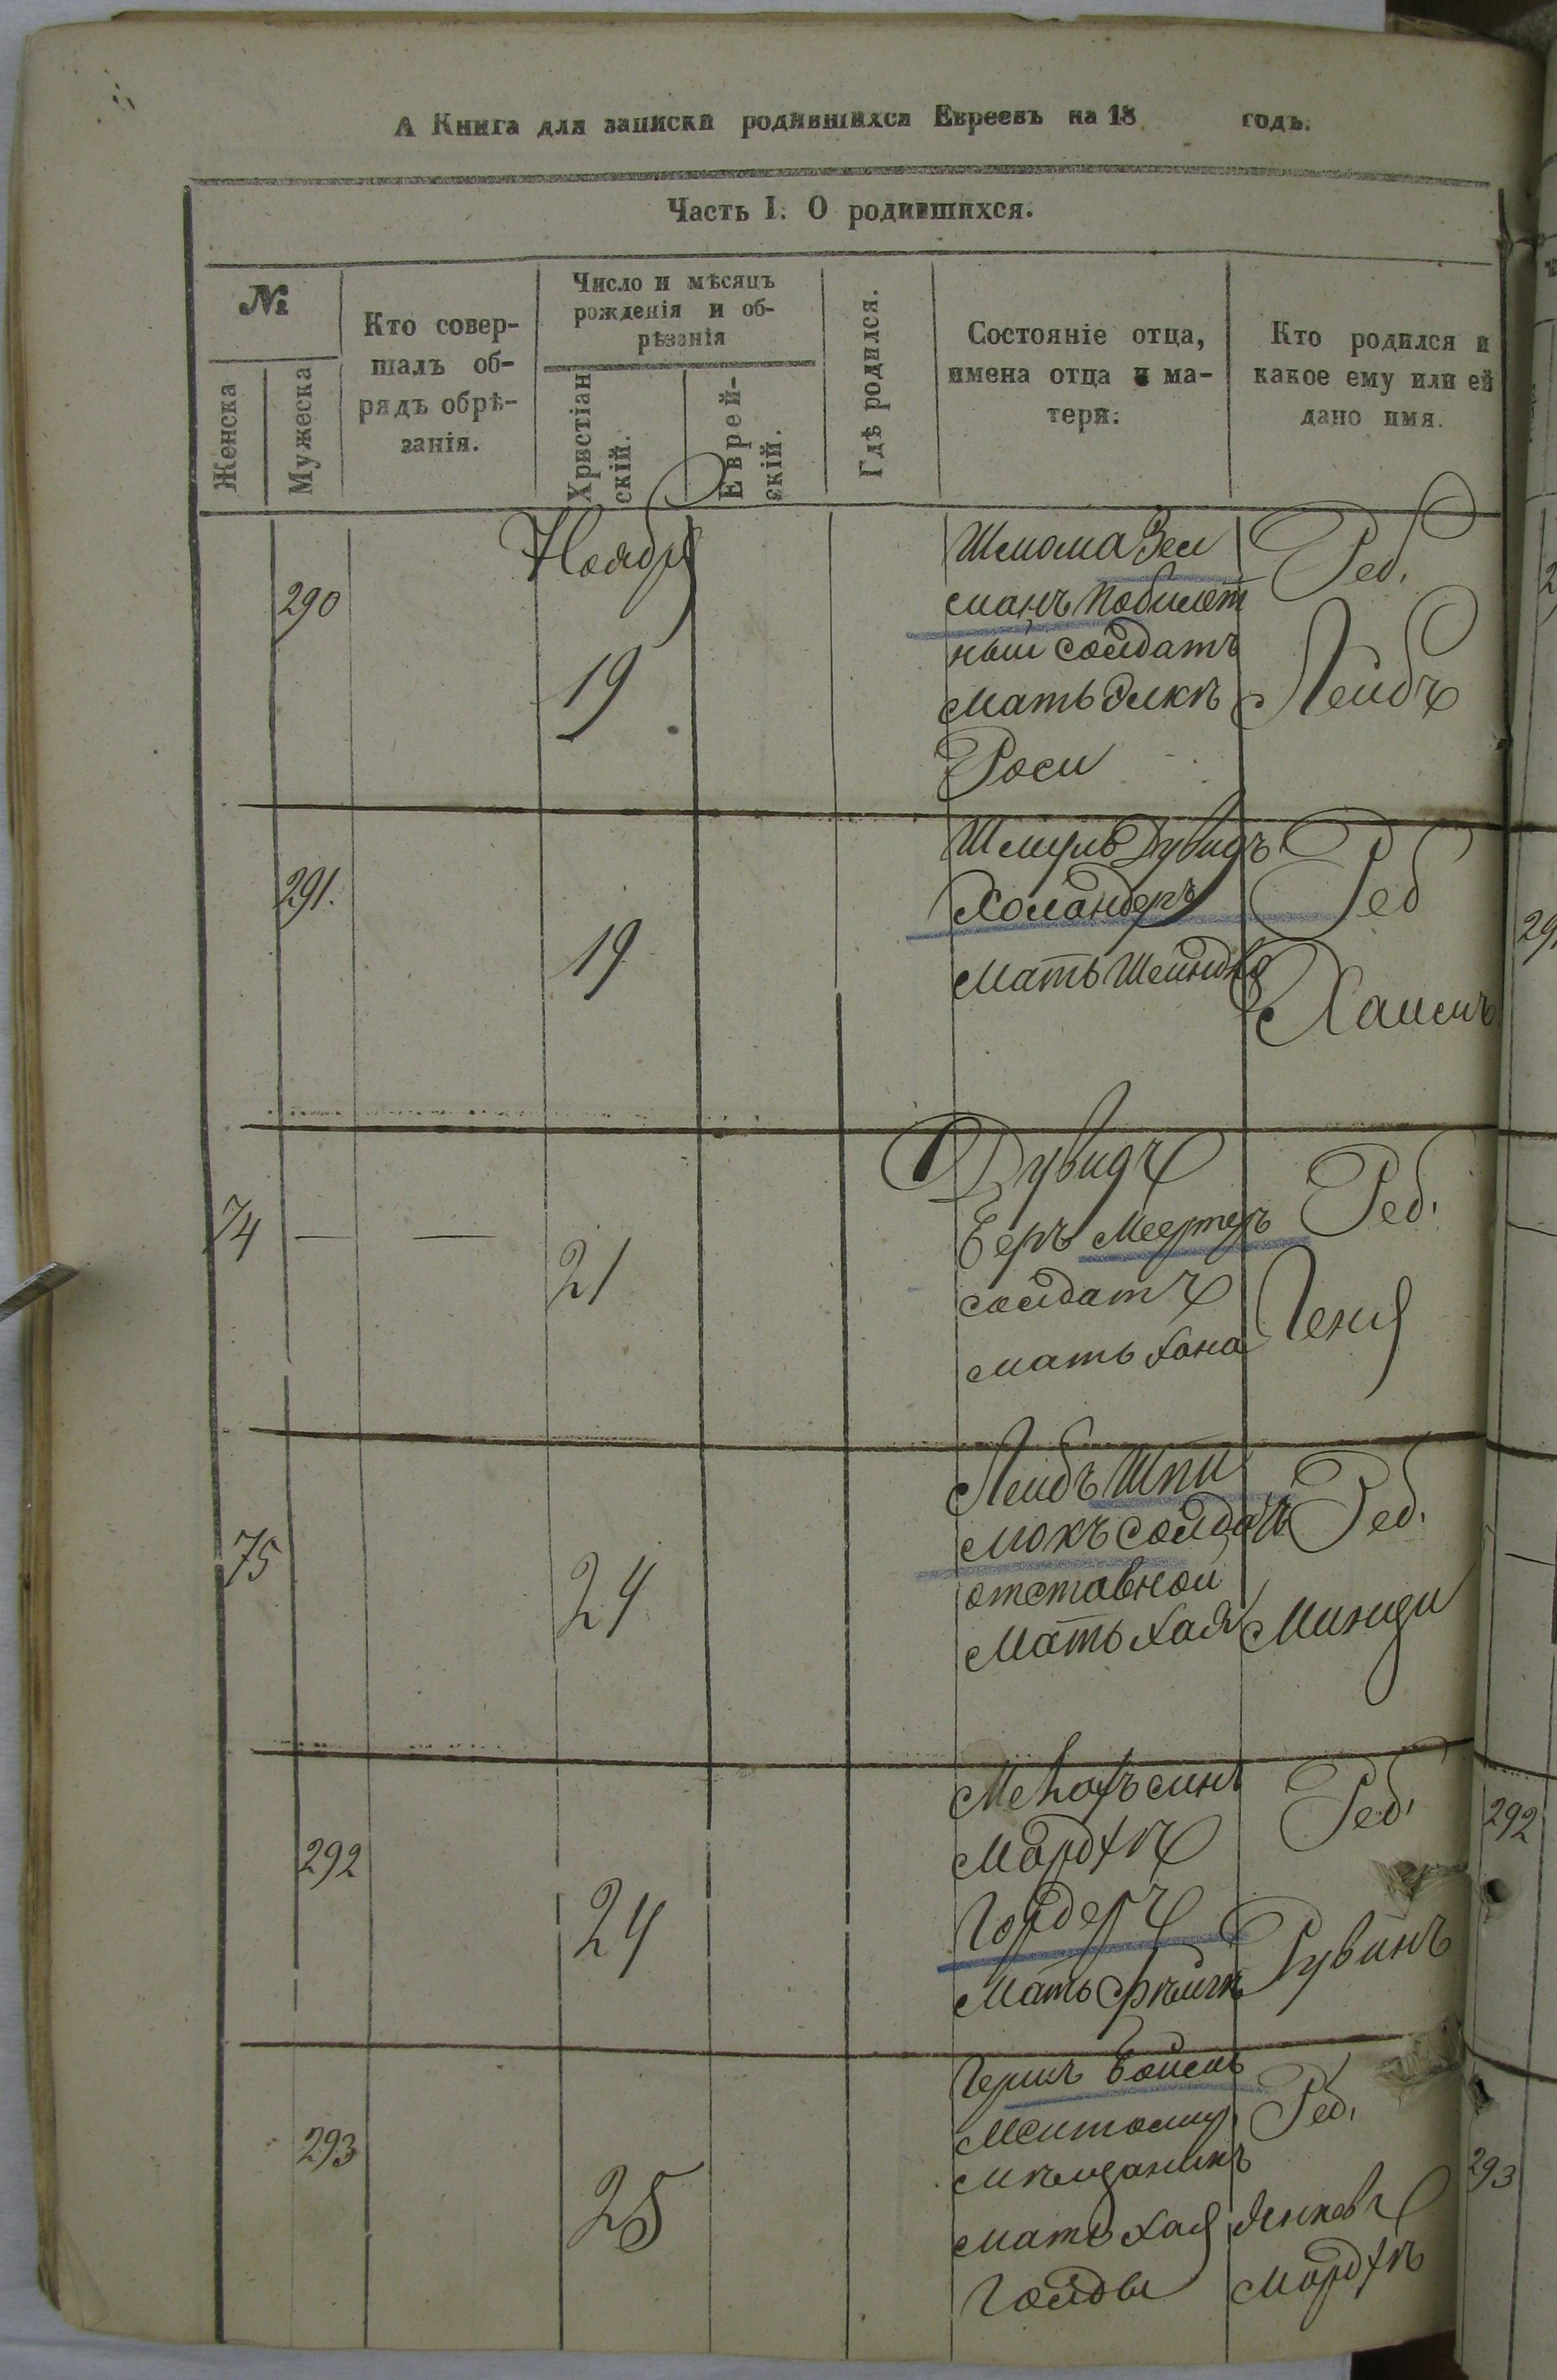 А Книга для записки родившихся Евреевъ на 18 годъ.
Часть I. О родившихся.
№
Женска
Мужеска
Кто совер-
шалъ об-
рядъ обрѣ-
занія.
Число и мѣсяцъ
рожденія и об-
рѣзанія
Христіан
скій.
Еврей-
скій.
Гдѣ родился.
Состояніе отца,
имена отца и ма-
тери.
Кто родился и
какое ему или ей
дано имя.
290
Ноября
19
Шлиома Зел
манъ побилет
ный солдатъ
мать Элкѣ
Роси
Реб.
Лейбъ
291.
19
Шмуль Дувидъ
Холандеръ
мать Шейндля
Реб
Хаимъ
74 — —
21
Дувидъ
Беръ
солдатъ
мать Хана
Реб.
Геня
75
24
Лейбъ Шпи
люкъ солдатъ
отставной
мать Хая
Реб.
Минци
292
24
синъ
Мордхѣ
Гордеръ
мать
Реб.
Рувинъ
293
25
Гершъ
Житомир.
мѣщанинъ
мать Хая
Голды
Реб.
Янкевъ
Мордхѣ
292
293